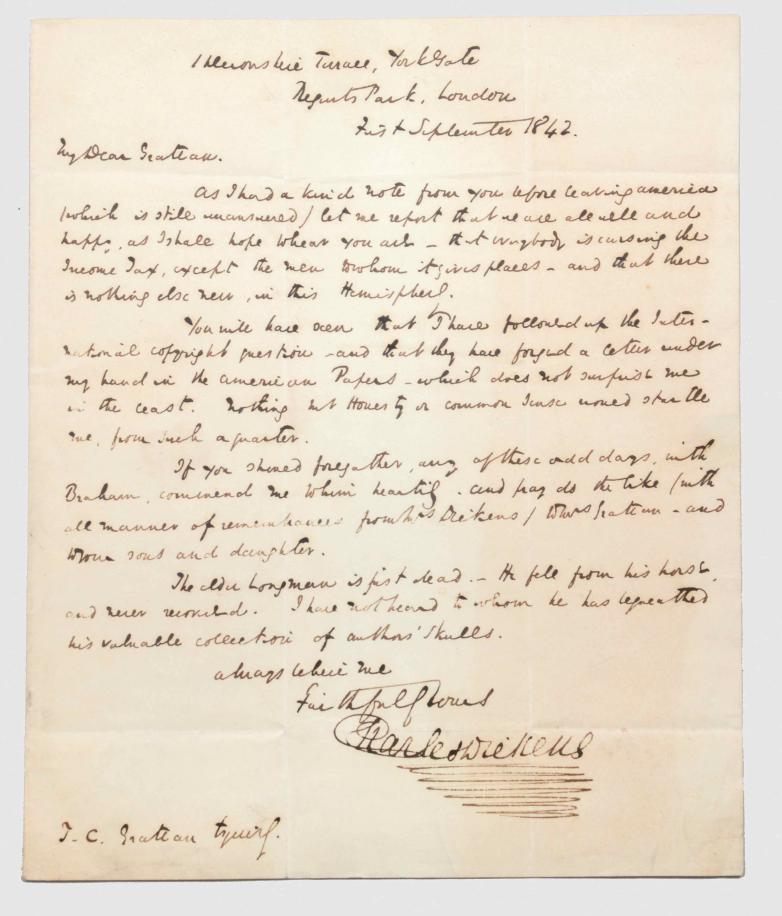 1 Devonshire Terrace, York Gate
Regents Park, London
First September 1842.
My Dear Grattan.
As I had a kind note from you before leaving America
(which is still unanswered) let me report that we are all well and
happy, as I shall hope to hear you are – that everybody is cursing the
Income Tax, except the men to whom it gives places – and that there
is nothing else new, in this Hemisphere.
You will have seen that I have followed up the Inter-
national copyright question – and that they have forged a letter under
my hand in the American Papers – which does not surprise me
in the least. Nothing but Honesty or common sense would startle
me, from such a quarter.
If you should foregather, any of these odd days, with
Braham, commend me to him heartily. And pray do the like (with
all manner of remembrances from Mrs Dickens) to Mrs Grattan – and
to your sons and daughter.
The elder Longman is just dead. – He fell from his horse,
and never recovered. I have not heard to whom he has bequeathed
his valuable collection of authors' skulls.
always believe me
Faithfully Yours
Charles Dickens
T. C. Grattan Esquire.